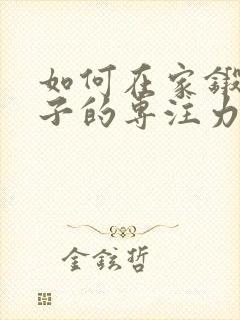 如何在家锻
子的专注力
金铉哲